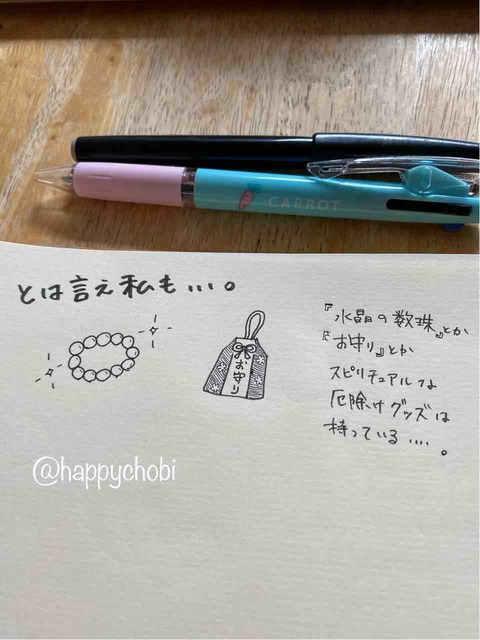 CARROT
とは言え私も...。
お守り
『水晶の数珠』とか
『お守り』とか
スピリチュアルな
厄除けグッズは
持っている....。
@happychobi